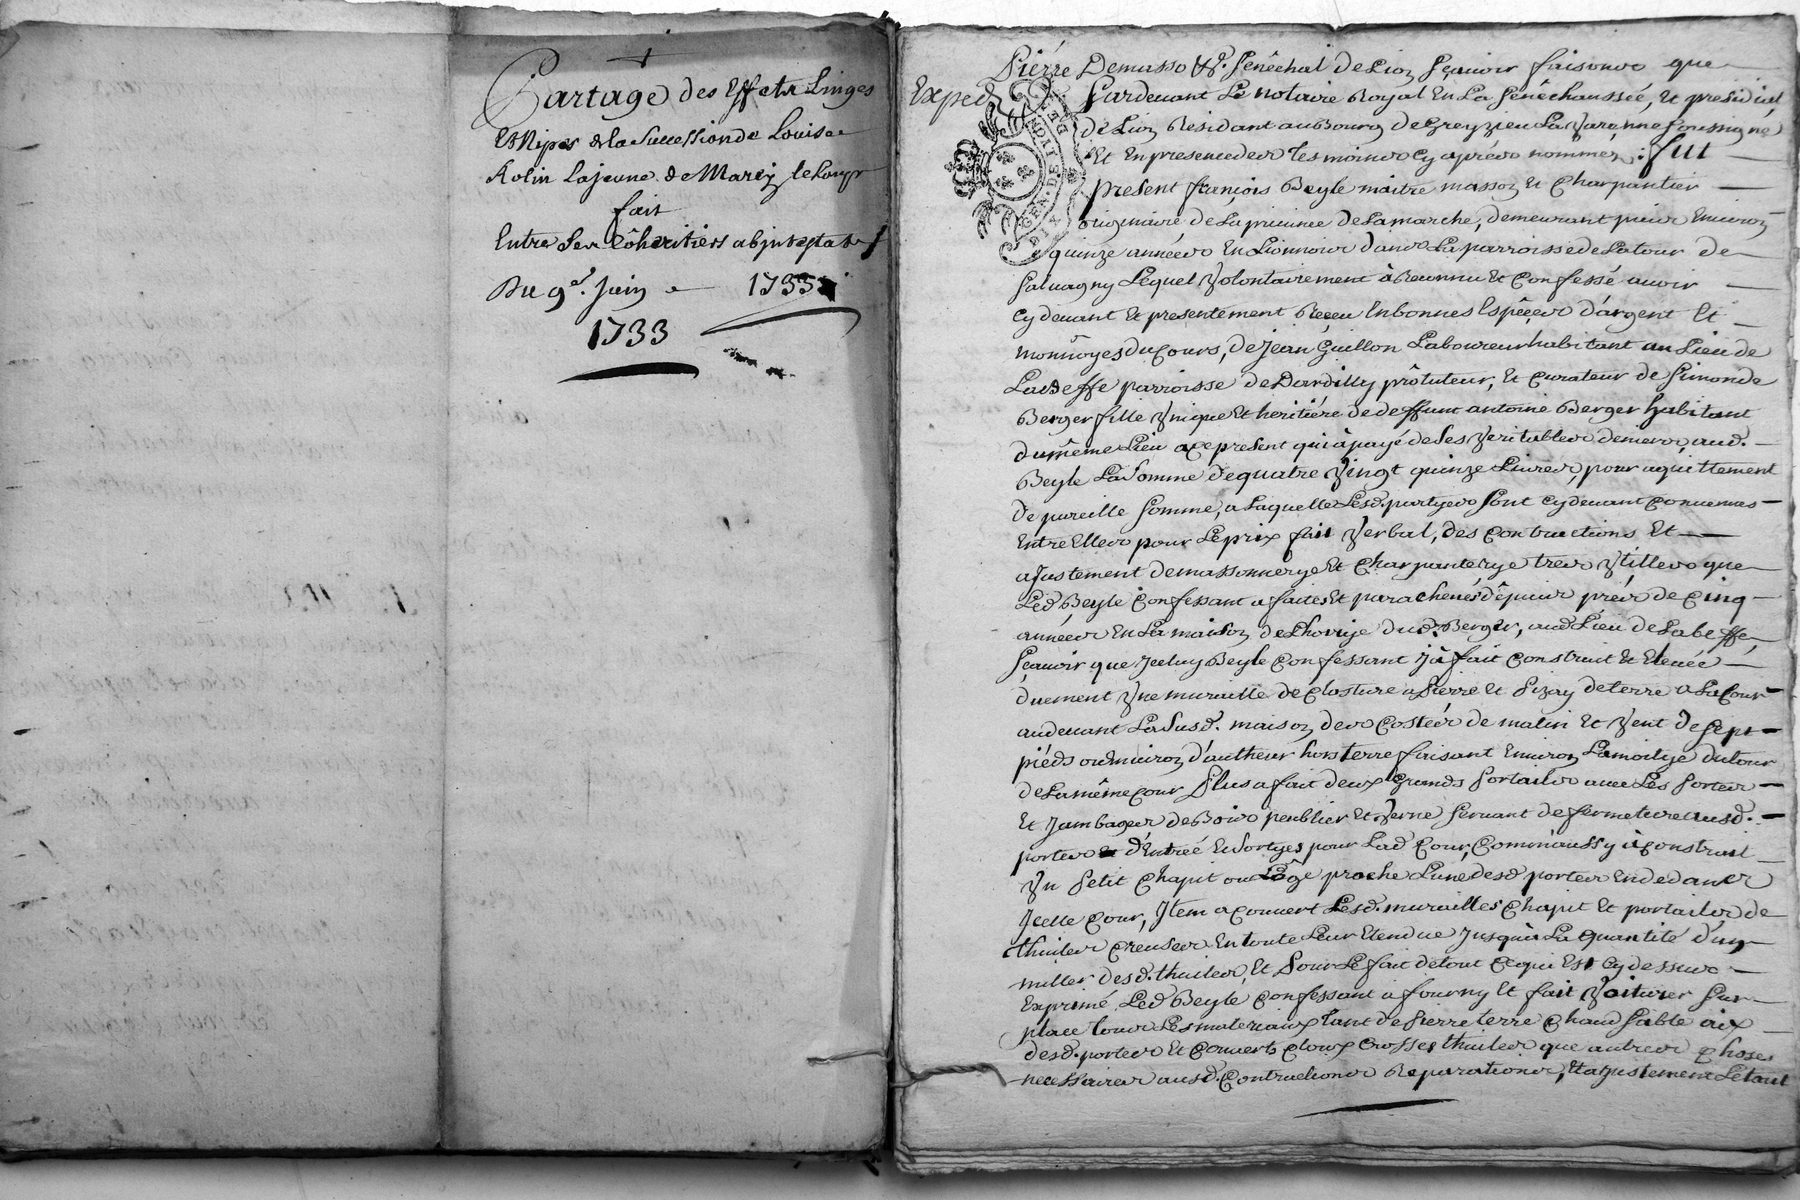 Partage des Effets Linges
Et Nipes de la Succession de Louise
Rolin Lajeune de Marcy le Loup
fait
Entre Ses Cohéritiers abjntestats
Du 9e. Juin 1733
1733
Pierre Demasso &c. Senêchal de Lion Sçauoir faisons que
Exped
Pardeuant Le Notaire Royal En La Senêchaussée, et presidial
de Lion Residant au Bourg de Greyzieu La Varenne soussigné
Et En presence des Tesmoins Cy aprés nommez : fut
present françois Beyle maitre masson et Charpantier
originaire de La prouince de La marche, demeurant puis Enuiron
quinze années En Lionnois dans La parroisse de La tour de
Saluagny Lequel Volontairement à Reconnu et Confessé auoir
Cy deuant Et presentement Reçeu En bonnes Espêces d'argent Et
monnoyes du Cours, de Jean Guillon Laboureur habitant au Lieu de
La Beffe parroisse de Dardilly prôtuteur, Et Curateur de Simonde
Berger fille Vnique et heritiére de deffunt antoine Berger habitant
du même Lieu ace present qui à payé de Ses Veritables deniers, aud.
Beyle La Somme de quatre Vingt quinze Liures, pour aquittement
de pareille Somme, a Laquelle Lesd. partyes Sont Cy deuant Conuenues
Entre Elles pour Le prix fait Verbal, des Contructions Et
ajustement de massonnerye Et Charpanterye tres Vtilles que
Led. Beyle Confessant a faites Et paracheués dêpuis prés de Cinq
années En La maison de Lhoirije dud. Berger, aud. Lieu de Labeffe,
Sçauoir que Jceluy Beyle Confessant Jà fait Construit et Eleueé
duement Vne muraille de Closture a Pierre et Pizay de terre a La Cour
audeuant La Susd. maison des Costés de matin Et Vent de Sept
piéds ou Enuiron d'autheur hors terre faisant Enuiron La moitye du tour
de La même Cour Plus a fait deux Grands Portails auec Les Portes
Et Jambages de Bois peublier Et Verne Seruant de fermeture ausd.
portes d'Entreé Et Sortyes pour Lad. Cour, Comm'aussy à Construit
Vn Petit Chapit ou Lôge proche L'une desd. portes En dedans
Jcelle Cour, Jtem a Couuert Lesd. murailles Chapit Et portails de
thuiles Creuses En toute Leur Etendue Jusqu'à La Quantité d'un
millier desd. thuiles, Et Pour Le fait de tout Ce qui Est Cy dessus
Exprimé Led. Beyle Confessant à fourny Et fait Voiturer Sur
place tous Les materiaux tant de Pierre terre Chaud Sable aix
desd. portes Et Couuerts Cloux Crosses thuiles que autres Choses
necessaires ausd. Contructions Reparations, Et ajustement Le tout